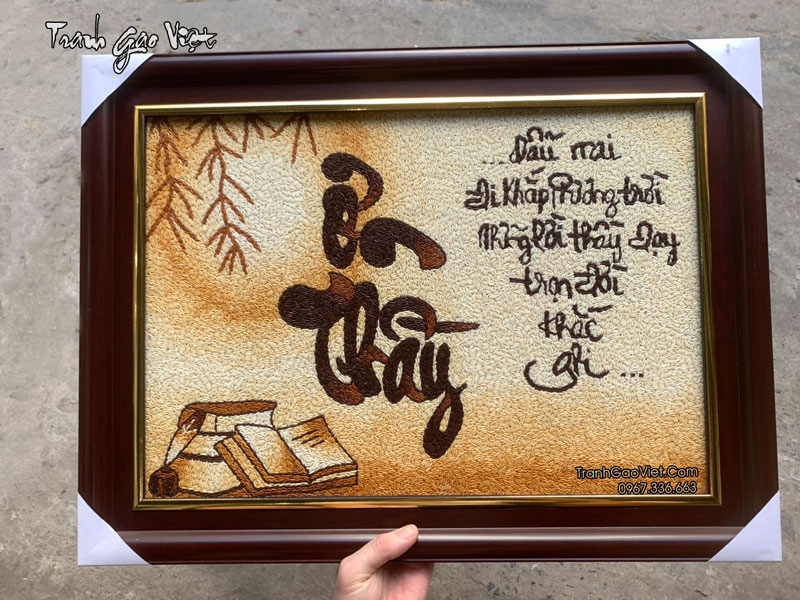 Tranh Gạo Việt
Ơn
Thầy
...Dẫu mai
Đi khắp phương trời
Những lời thầy dạy
trọn đời
khắc
ghi...
TranhGaoViet.Com
0967.336.663